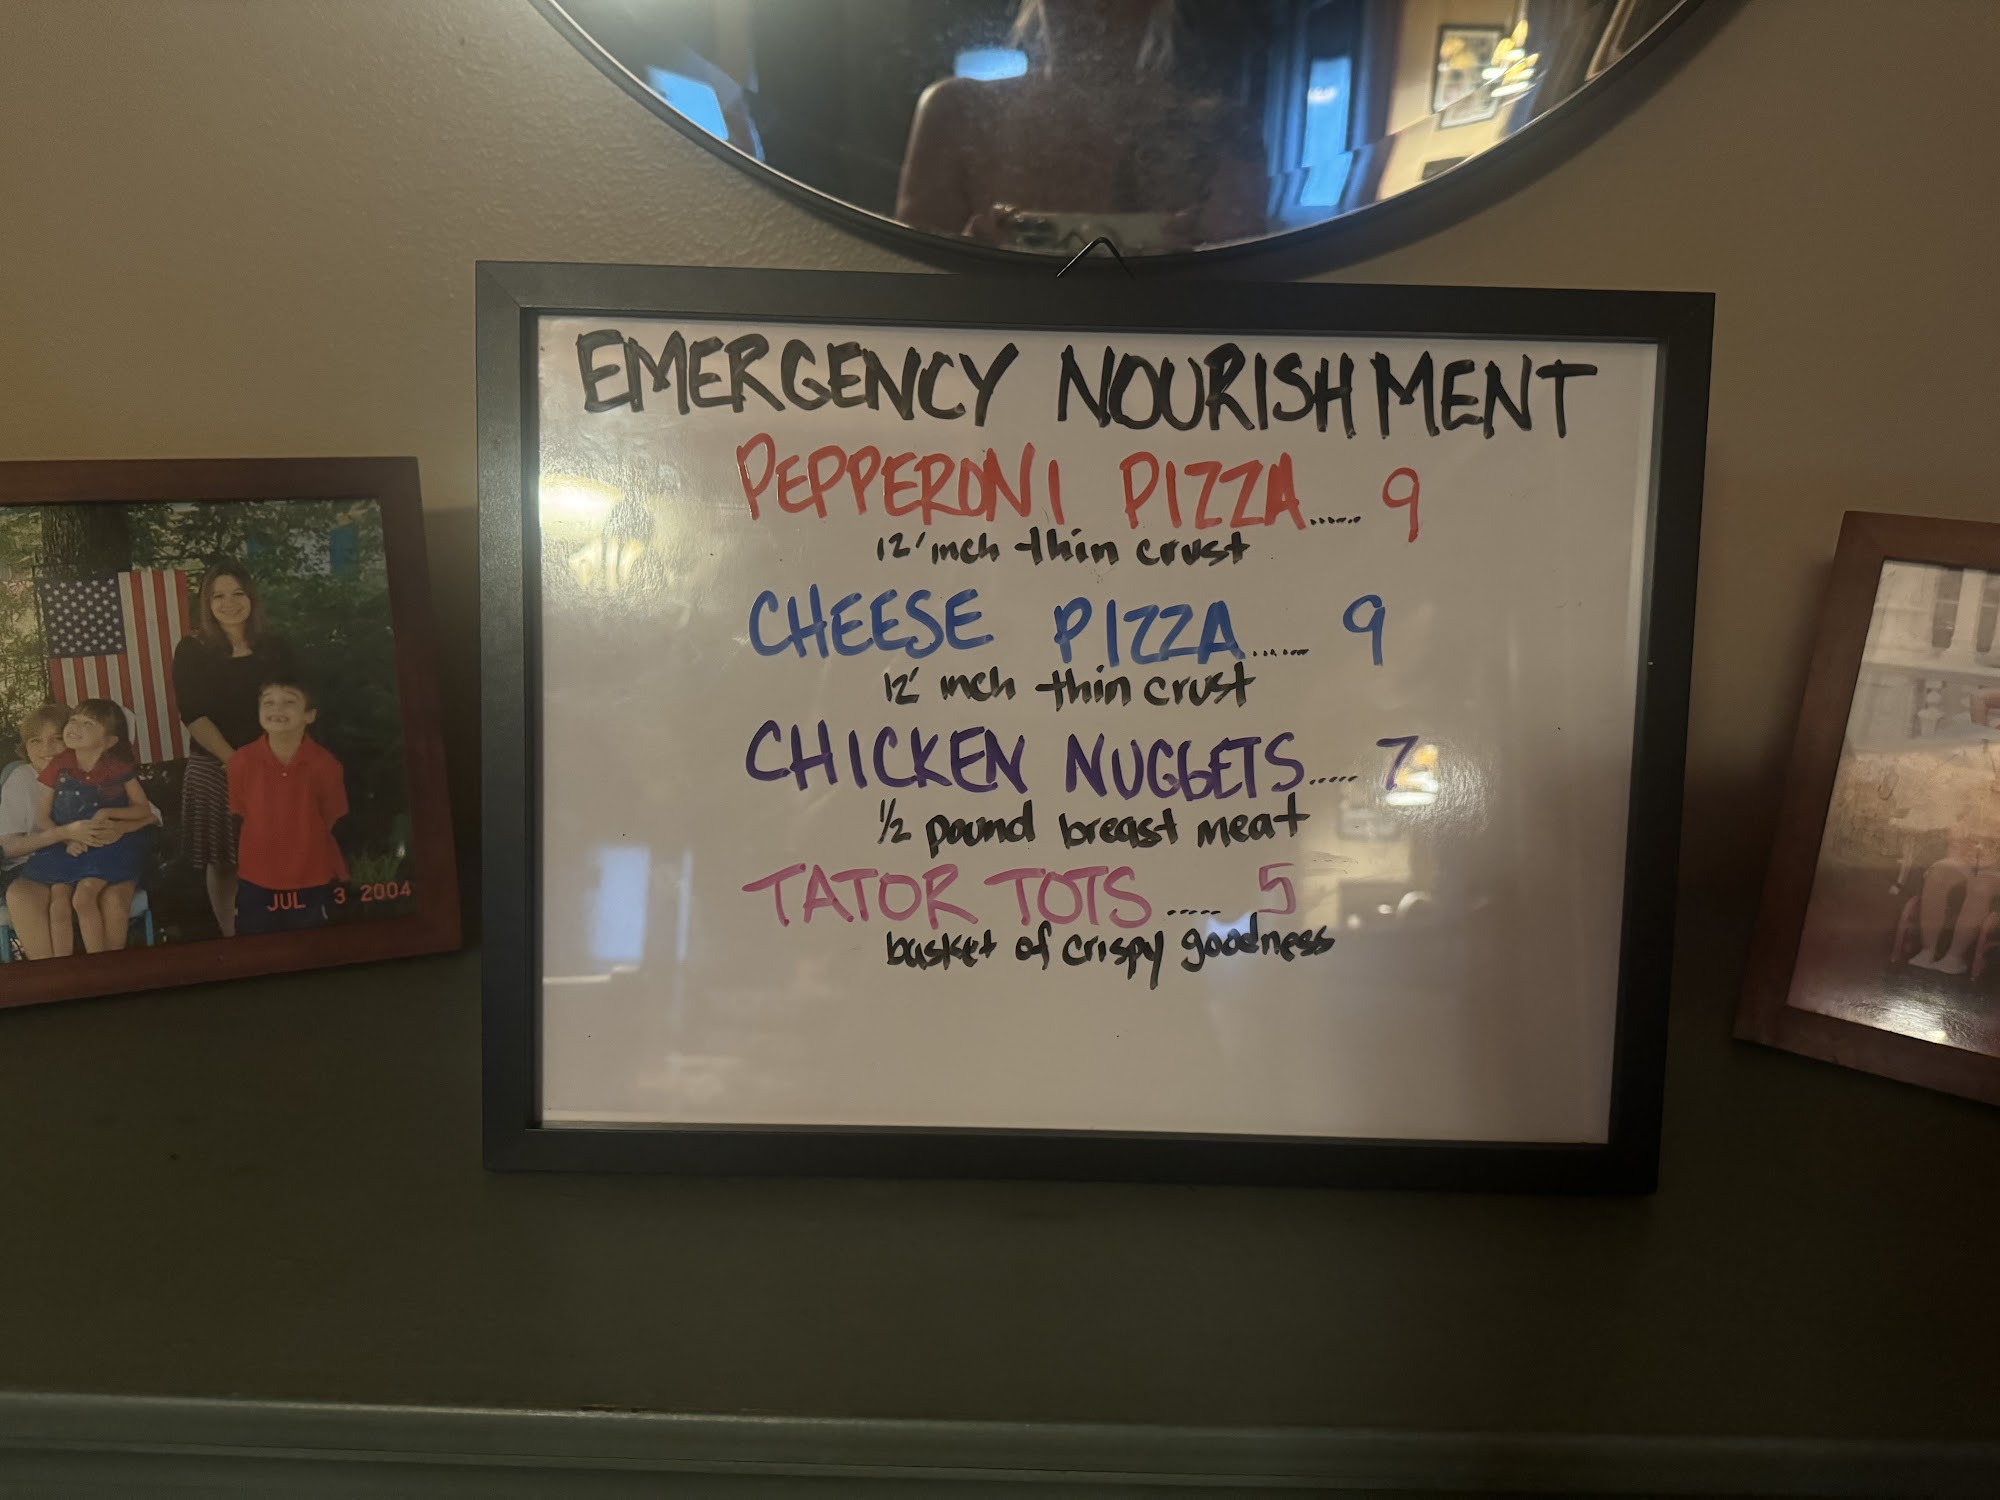 EMERGENCY NOURISHMENT
PEPPERONI PIZZA...... 9
12' inch thin crust
CHEESE PIZZA...... 9
12' inch thin crust
CHICKEN NUGGETS..... 7
1/2 pound breast meat
TATOR TOTS..... 5
basket of crispy goodness
JUL 3 2004